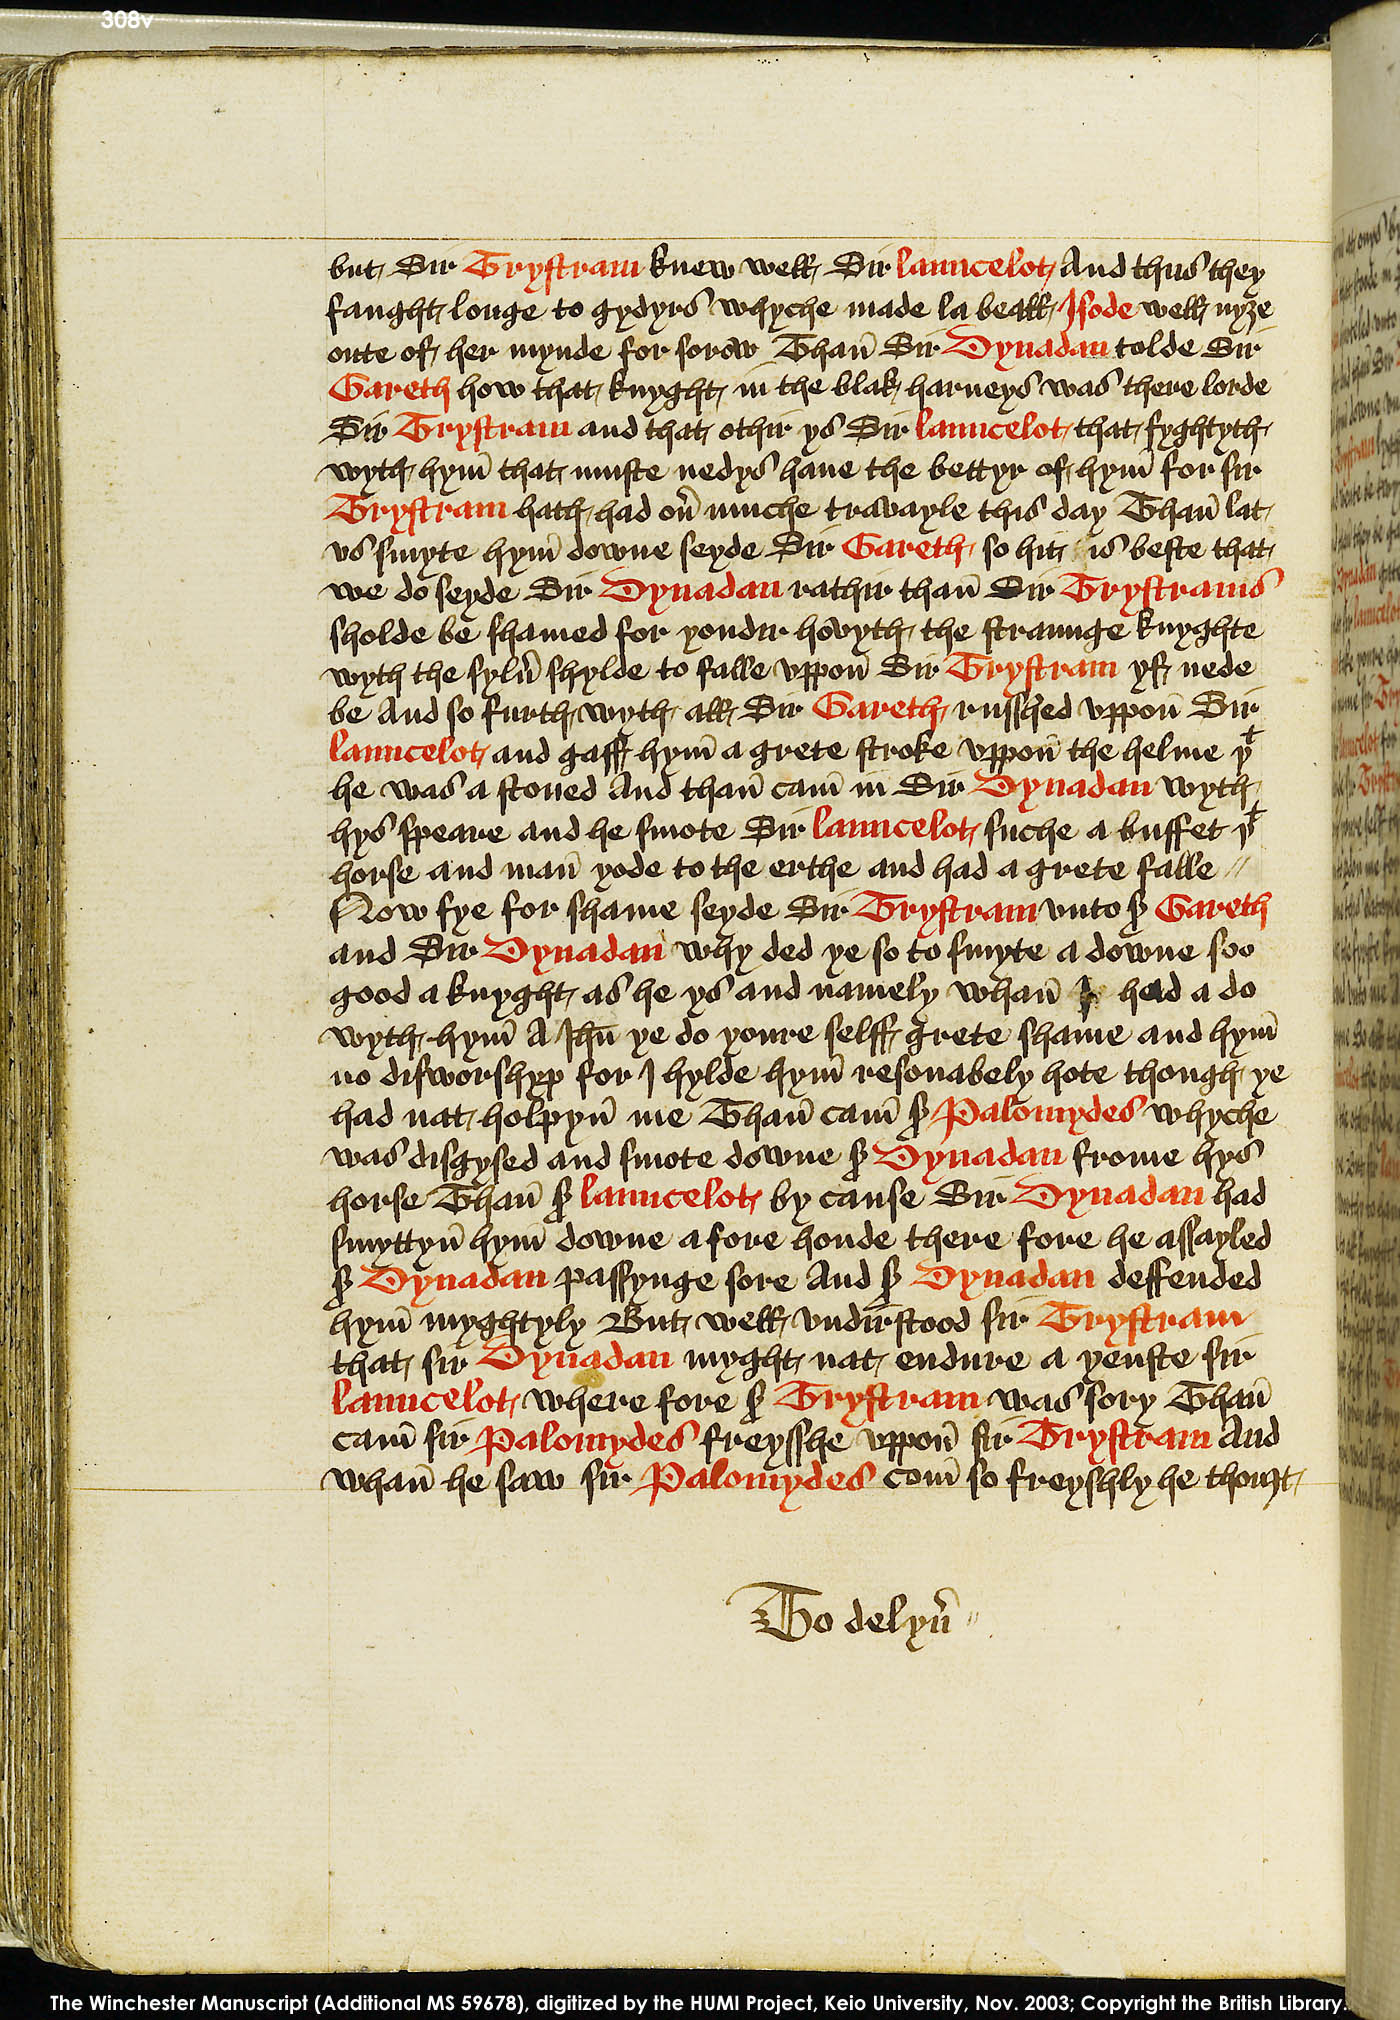 308v
but Sir Trystram knew well Sir launcelot And thus they
faught longe to gydyrs whyche made la beall Isode well nyȝe
oute of her mynde for sorow Thañ Sir Dynadan tolde Sir
Gareth how that knyght in the blak harneys was there lorde
Sir Trystram and that othir ys Sir launcelot that fyghtyth
wyth hym̄ that muste nedys haue the bettyr of hym̄ for sir
Trystram hath had oũ muche travayle this day Thañ lat
vs smyte hym̄ downe seyde Sir Gareth so hit is beste that
we do seyde Sir Dynadan rathir thañ Sir Trystrams
sholde be shamed for yondir hovyth the straunge knyghte
wyth the sylũ shylde to falle vppoñ Sir Trystram yf nede
be And so furth wyth all Sir Gareth russhed vppoñ Sir
launcelot and gaff hym̄ a grete stroke vppoñ the helme yᵗ
he was a stoned And thañ cam̄ in Sir Dynadan wyth
hys speare and he smote Sir launcelot suche a buffet yᵗ
horse and mañ yode to the erthe and had a grete falle //
Now fye for shame seyde Sir Trystram vnto sꝛ Gareth
and Sir Dynadan why ded ye so to smyte a downe soo
good a knyght as he ys and namely whañ I had a do
wyth hym̄ A Jhū ye do youre selff grete shame and hym̄
no disworshyp for I hylde hym̄ resonabely hote though ye
had nat holpyñ me Thañ cam̄ sꝛ Palomydes whyche
was disgysed and smote downe sꝛ Dynadan frome hys
horse Thañ sꝛ launcelot by cause Sir Dynadan had
smyttyñ hym̄ downe a fore honde there fore he assayled
sꝛ Dynadan passynge sore And sꝛ Dynadan deffended
hym̄ myghtyly But well vndirstood sir Trystram
that sir Dynadan myght nat endure a yenste sir
launcelot where fore sꝛ Trystram was sory Thañ
cam̄ sir Palomydes freysshe vppoñ sir Trystram And
whañ he saw sir Palomydes com̄ so freyshly he thouȝt
To delyũ //
The Winchester Manuscript (Additional MS 59678), digitized by the HUMI Project, Keio University, Nov. 2003; Copyright the British Library.